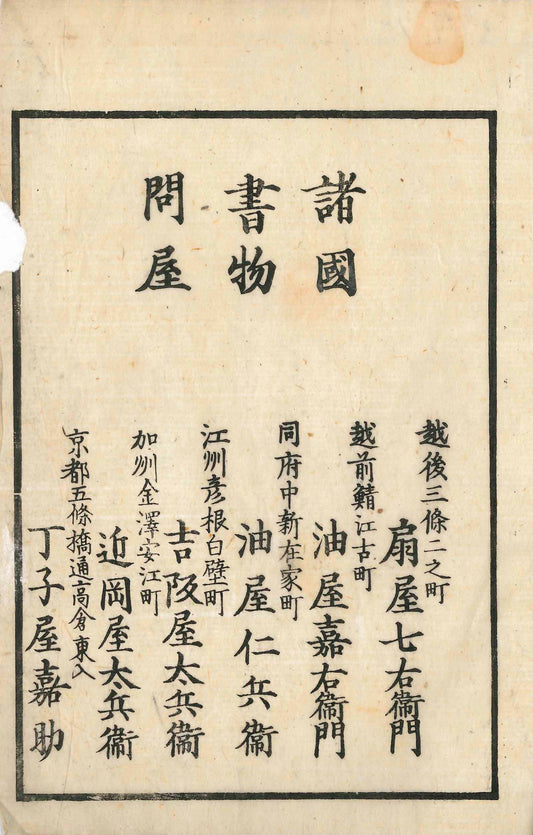 諸國
書物
問屋
越後三條二之町
扇屋七右衞門
越前鯖江古町
油屋嘉右衞門
同府中新在家町
油屋仁兵衞
江州彦根白壁町
吉阪屋太兵衞
加州金澤安江町
近岡屋太兵衞
京都五條橋通高倉東入
丁子屋嘉助